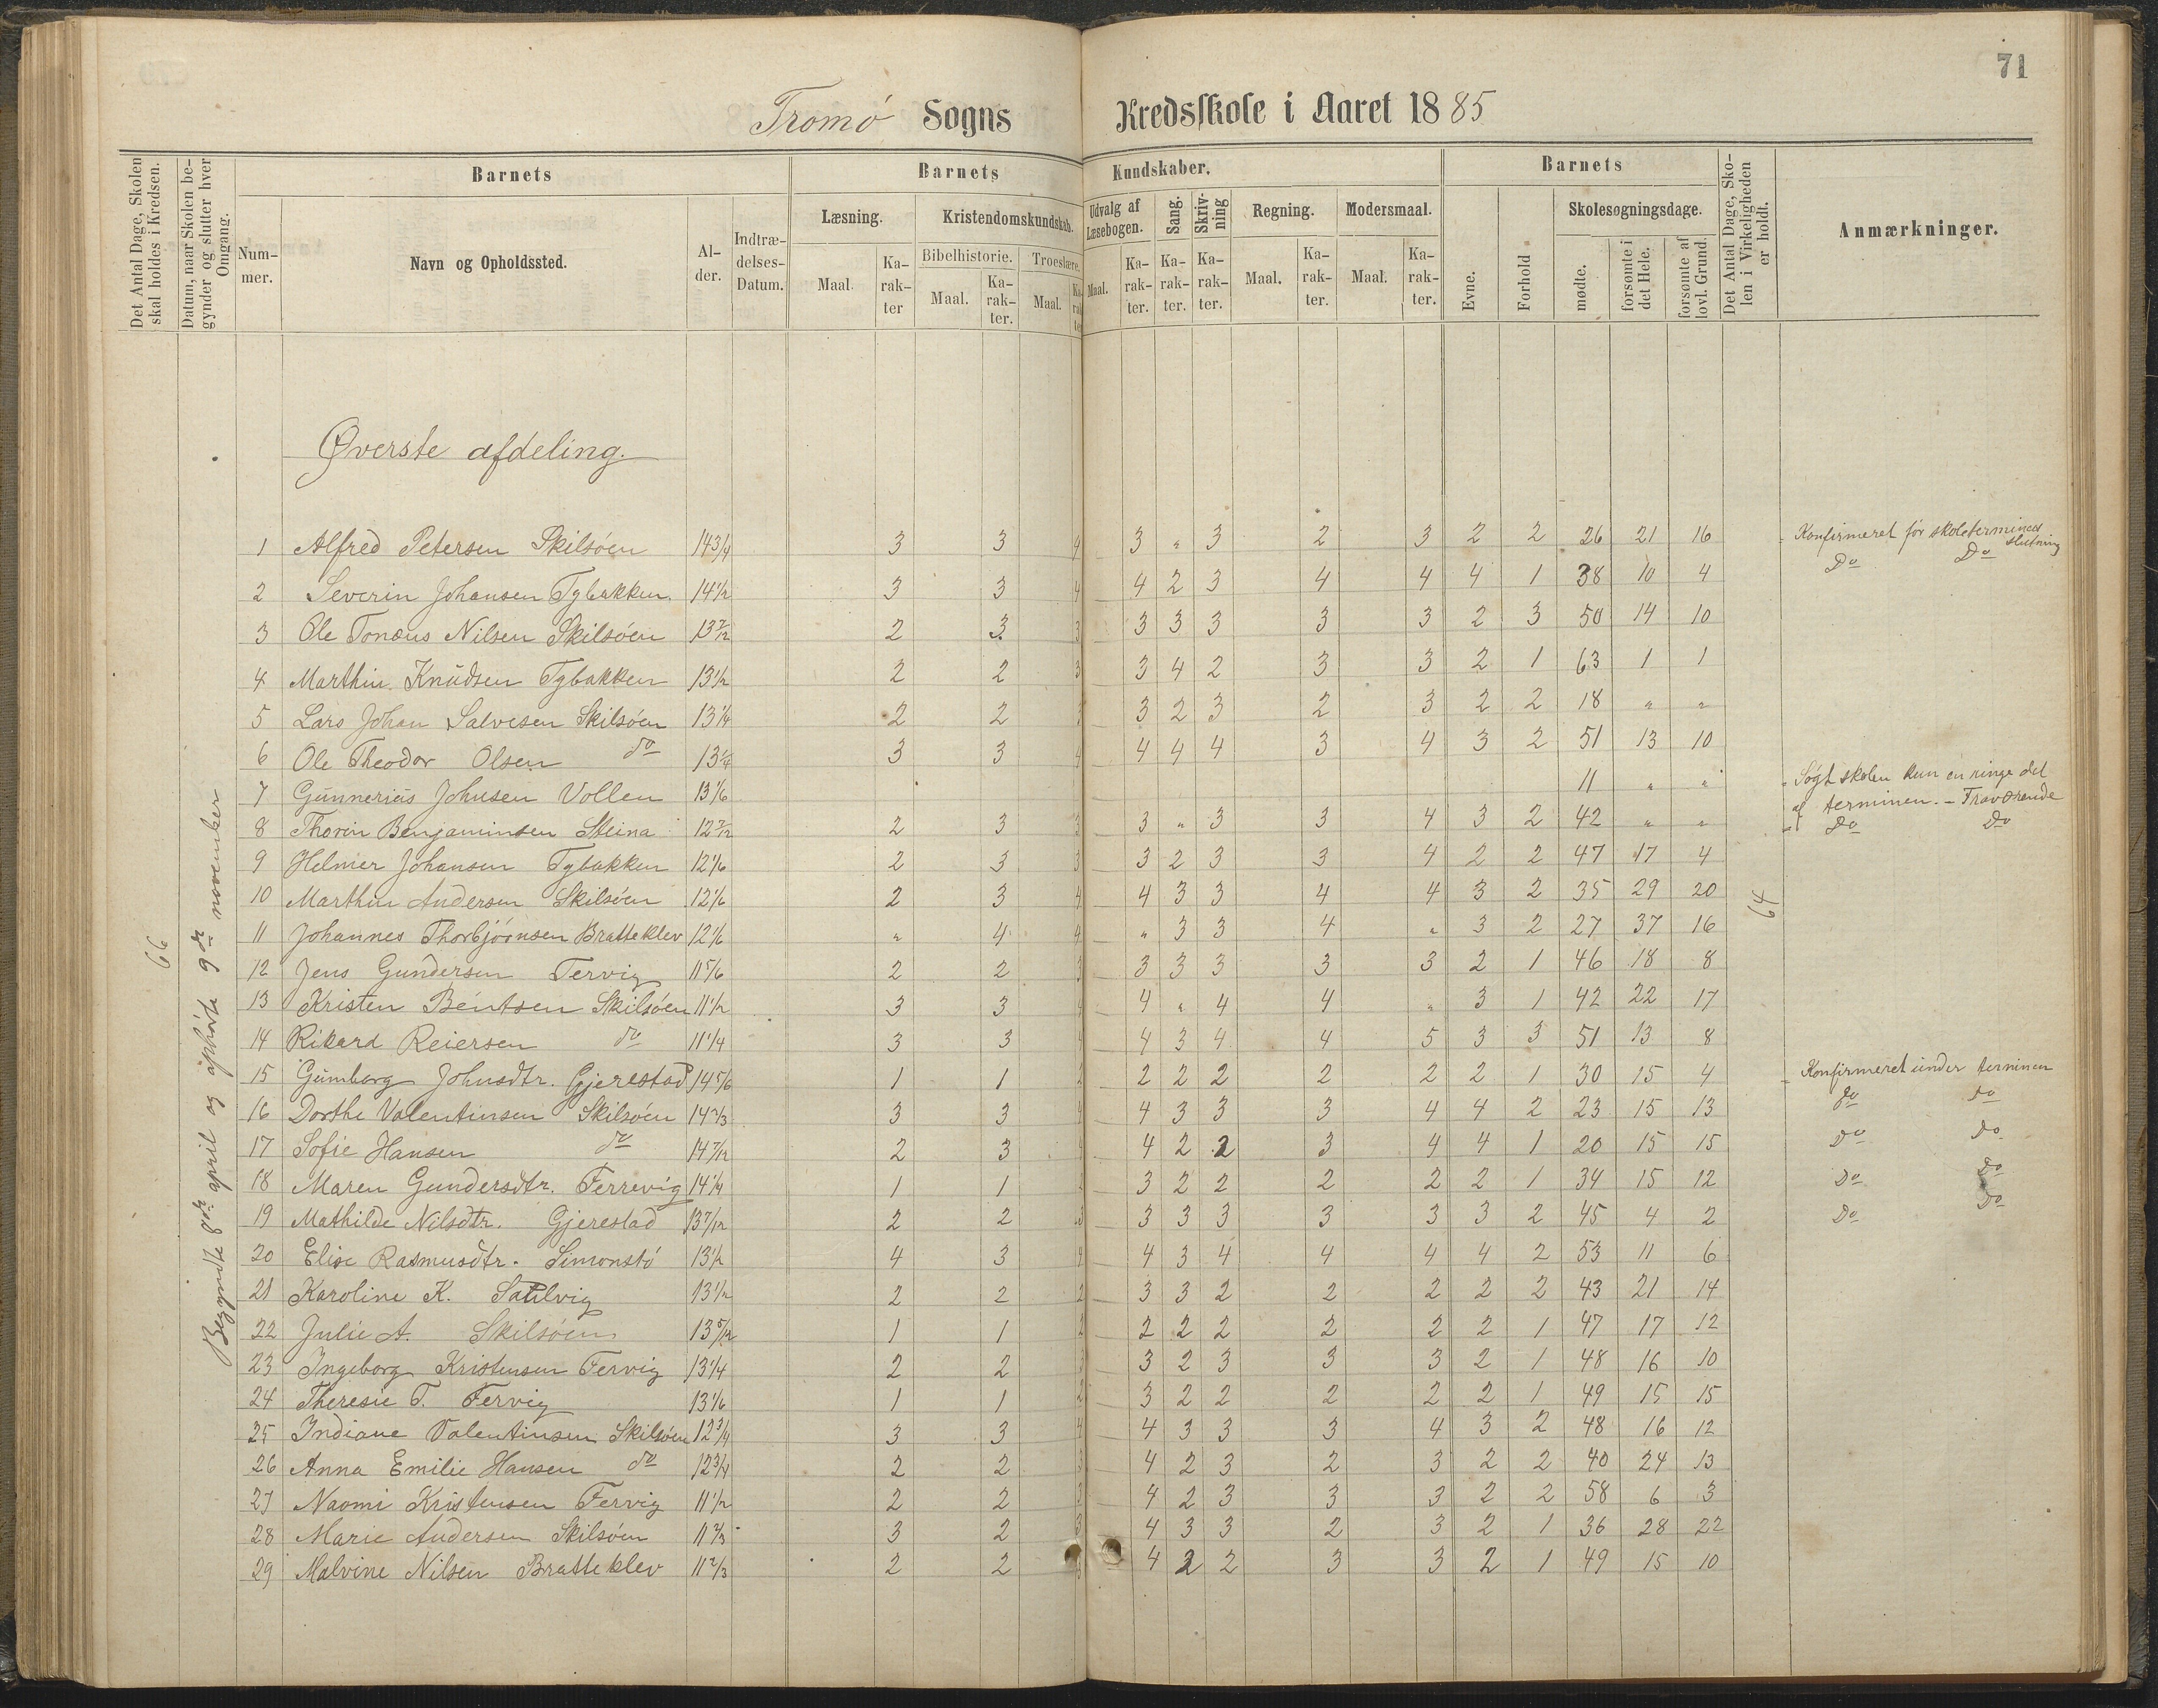 71
Tromö Sogns Kredsskole i Aaret 1885
Det Antal Dage, Skolen skal holdes i Kredsen.
Datum, naar Skolen begynder og slutter hver Omgang.
Barnets
Num-
mer.
Navn og Opholdssted.
Al-
der.
Indtræ-
delses-
Datum.
Barnets Kundskaber.
Læsning.
Maal.
Ka-
rak-
ter
Kristendomskundskab.
Bibelhistorie.
Maal.
Ka-
rak-
ter.
Troeslære.
Maal.
Udvalg af
Læsebogen.
Maal.
Ka-
rak-
ter.
Sang.
Ka-
rak-
ter.
Skriv-
ning
Ka-
rak-
ter.
Regning.
Maal.
Ka-
rak-
ter.
Modersmaal.
Maal.
Ka-
rak-
ter.
Barnets
Evne.
Forhold
Skolesøgningsdage.
møde.
forsømte i
det Hele.
forsømte af
lovl. Grund.
Det Antal Dage, Sko-
len i Virkeligheden
er holdt.
Anmærkninger.
66
Begyndte 8de april og ophørte 9de november
64
Øverste afdeling.
1 Alfred Petersen Skilsöen 14 3/4 3 3 4 3 " 3 2 3 2 2 26 21 16 Konfirmeret för skoleterminens slutning
2 Severin Johansen Tybakken 14 1/2 3 3 4 4 2 3 4 4 4 1 38 10 4 Do Do
3 Ole Tonæus Nilsen Skilsöen 13 7/12 2 3 3 3 3 3 3 3 2 3 50 14 10
4 Marthin Knudsen Tybakken 13 1/2 2 2 3 3 4 2 3 3 2 1 63 1 1
5 Lars Johan Salvesen Skilsöen 13 1/4 2 2 3 2 3 2 3 2 2 18 " "
6 Ole Theodor Olsen do 13 1/4 3 3 4 4 4 4 3 4 3 2 51 13 10
7 Gunnerius Johnsen Vollen 13 1/6 11 " " Søgt skolen kun en ringe del af terminen. - Fraværende
8 Thorvin Benjaminsen Steina 12 7/12 2 3 3 3 " 3 3 4 3 2 42 " " Do Do
9 Helmer Johansen Tybakken 12 1/6 2 3 3 3 2 3 3 4 2 2 47 17 4
10 Marthin Andersen Skilsöen 12 1/6 2 3 4 4 3 3 4 4 3 2 35 29 20
11 Johannes Thorbjörnsen Bratteklev 12 1/6 " 4 4 " 3 3 4 " 3 2 27 37 16
12 Jens Gundersen Tervig 11 5/6 2 2 3 3 3 3 3 3 2 1 46 18 8
13 Kristen Bentsen Skilsöen 11 1/2 3 3 4 4 " 4 4 " 3 1 42 22 17
14 Rikard Reiersen do 11 1/4 3 3 4 4 3 4 4 5 3 3 51 13 8
15 Gunborg Johnsdtr. Gjerestad 14 5/6 1 1 2 2 2 2 2 2 2 1 30 15 4 Konfirmeret under terminen
16 Dorthe Valentinsen Skilsöen 14 2/3 3 3 4 4 3 3 3 4 4 2 23 15 13 do do
17 Sofie Hansen do 14 7/12 2 3 4 4 2 2 3 4 4 1 20 15 15 Do Do
18 Maren Gundersdtr. Ferrevig 14 1/4 1 1 3 2 2 2 2 2 1 34 15 12 Do Do
19 Mathilde Nilsdtr. Gjerestad 13 7/12 2 2 3 3 3 3 3 3 3 2 45 4 2 Do Do
20 Elise Rasmusdtr. Simonstö 13 1/2 4 3 4 4 3 4 4 4 4 2 53 11 6
21 Karoline K. Sandvig 13 1/2 2 2 2 3 3 2 2 2 2 2 43 21 14
22 Julie A. Skilsöen 13 5/12 1 1 2 2 2 2 2 2 2 1 47 17 12
23 Ingeborg Kristensen Fervig 13 1/4 2 2 3 3 2 3 3 3 2 1 48 16 10
24 Theresie T. Fervig 13 1/6 1 1 2 3 2 2 2 2 2 1 49 15 15
25 Indiane Valentinsen Skilsöen 12 3/4 3 3 4 4 3 3 3 4 3 2 48 16 12
26 Anna Emilie Hansen do 12 3/4 2 2 3 4 2 3 2 3 2 2 40 24 13
27 Naomi Kristensen Fervig 11 1/2 2 2 3 4 2 3 3 3 2 2 58 6 3
28 Marie Andersen Skilsöen 11 2/3 3 2 3 4 3 3 2 3 2 1 36 28 22
29 Malvine Nilsen Bratteklev 11 2/3 2 2 4 2 2 3 3 2 1 49 15 10